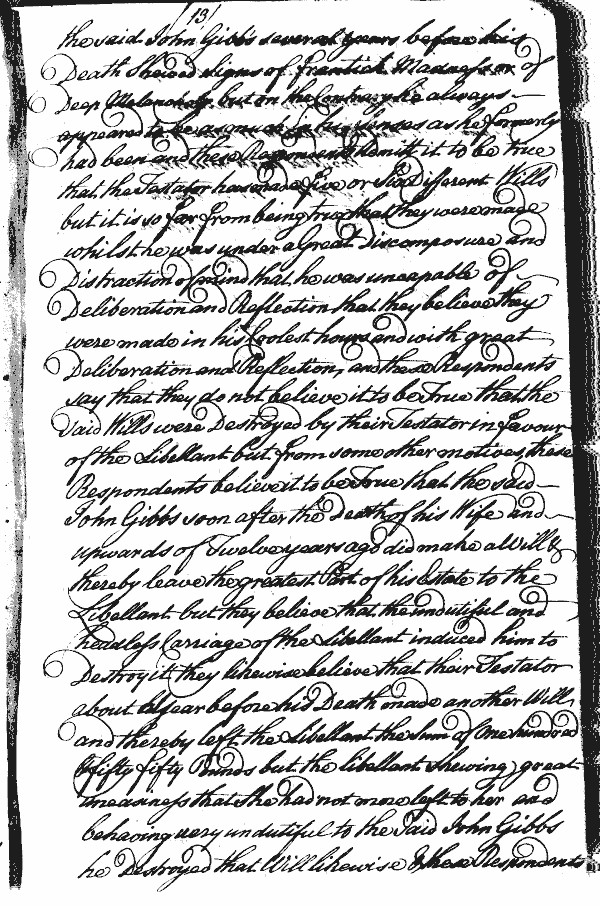 /13/
the said John Gibbs several years before his
Death Shewed signs of frantick Madness or of
Deep Melancholy, but on the Contrary he always
appeared to be as much in his senses as he formerly
had been and these Respondents Admitt it to be true
that the Testator has made Five or Six Different Wills
but it is so far from being true that they were made
whilst he was under a Great Discomposure and
Distraction of mind that he was uncapable of
Deliberation and Reflection that they believe they
were made in his Coolest hours and with great
Deliberation and Reflection, and these Respondents
say that they do not believe it to be True that the
said Wills were Destroyed by their Testator in favour
of the Libellant but from some other motives, these
Respondents believe it to be True that the said
John Gibbs soon after the Death of his Wife and
upwards of Twelve years ago did make a Will &
thereby leave the greatest Part of his Estate to the
Libellant but they believe that the undutiful and
headless Carriage of the Libellant induced him to
Destroy it, they likewise believe that their Testator
about a Year before his Death made another Will,
and thereby left the Libellant the Sum of One hundred
& fifty fifty Pounds but the libellant Shewing great
uneasiness that She had not more left to her and
behaving very undutiful to the said John Gibbs
he Destroyed that Will likewise & these Respondents